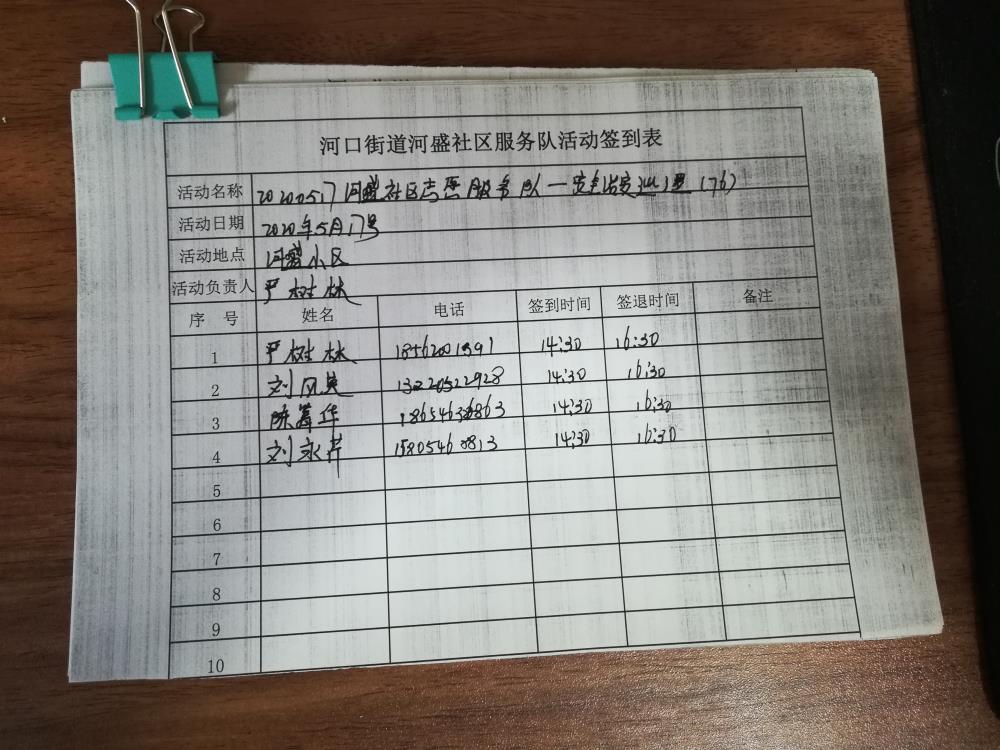 河口街道河盛社区服务队活动签到表
活动名称 20200517河盛社区志愿服务队一 (76)
活动日期 2020年5月17号
活动地点 河盛小区
活动负责人 严树林
序 号 姓名 电话 签到时间 签退时间 备注
1 严树林 18562001391 14:30 16:30
2 刘风英 13220522928 14:30 16:30
3 陈 华 14:30 16:30
4 刘永芹 14:30 16:30
5
6
7
8
9
10